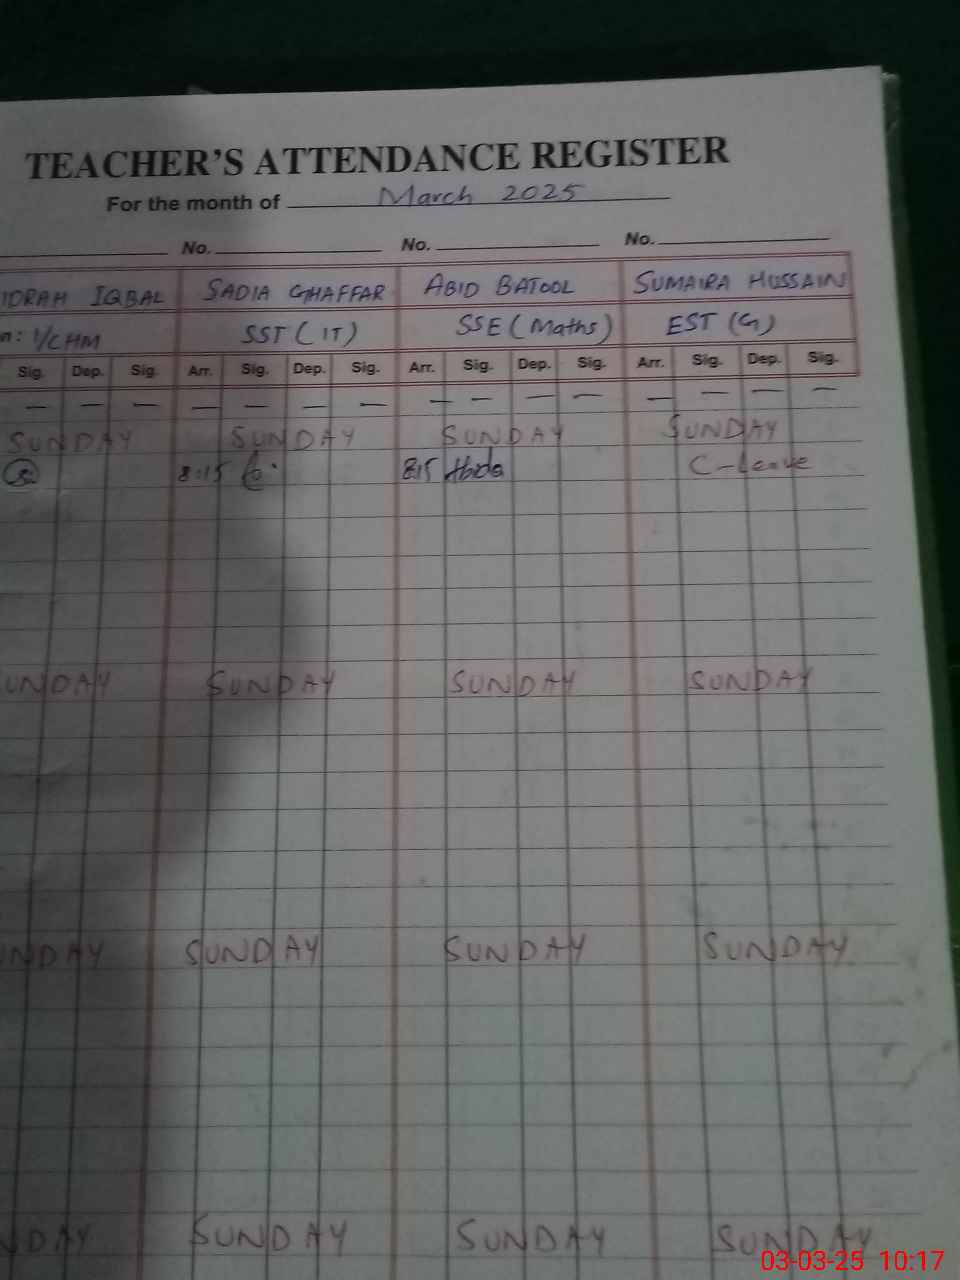 TEACHER'S ATTENDANCE REGISTER
For the month of March 2025
No. No. No.
IDRAH IQBAL SADIA GHAFFAR ABID BATOOL SUMAIRA HUSSAIN
n: I/CHM SST (IT) SSE (Maths) EST (G)
Sig. Dep. Sig. Arr. Sig. Dep. Sig. Arr. Sig. Dep. Sig. Arr. Sig. Dep. Sig.
— — — — — — — — — — — — — — —
SUNDAY SUNDAY SUNDAY SUNDAY
8:15 8:15 Abida C-leave
UNDAY SUNDAY SUNDAY SUNDAY
UNDAY SUNDAY SUNDAY SUNDAY
NDAY SUNDAY SUNDAY SUNDAY
03-03-25 10:17